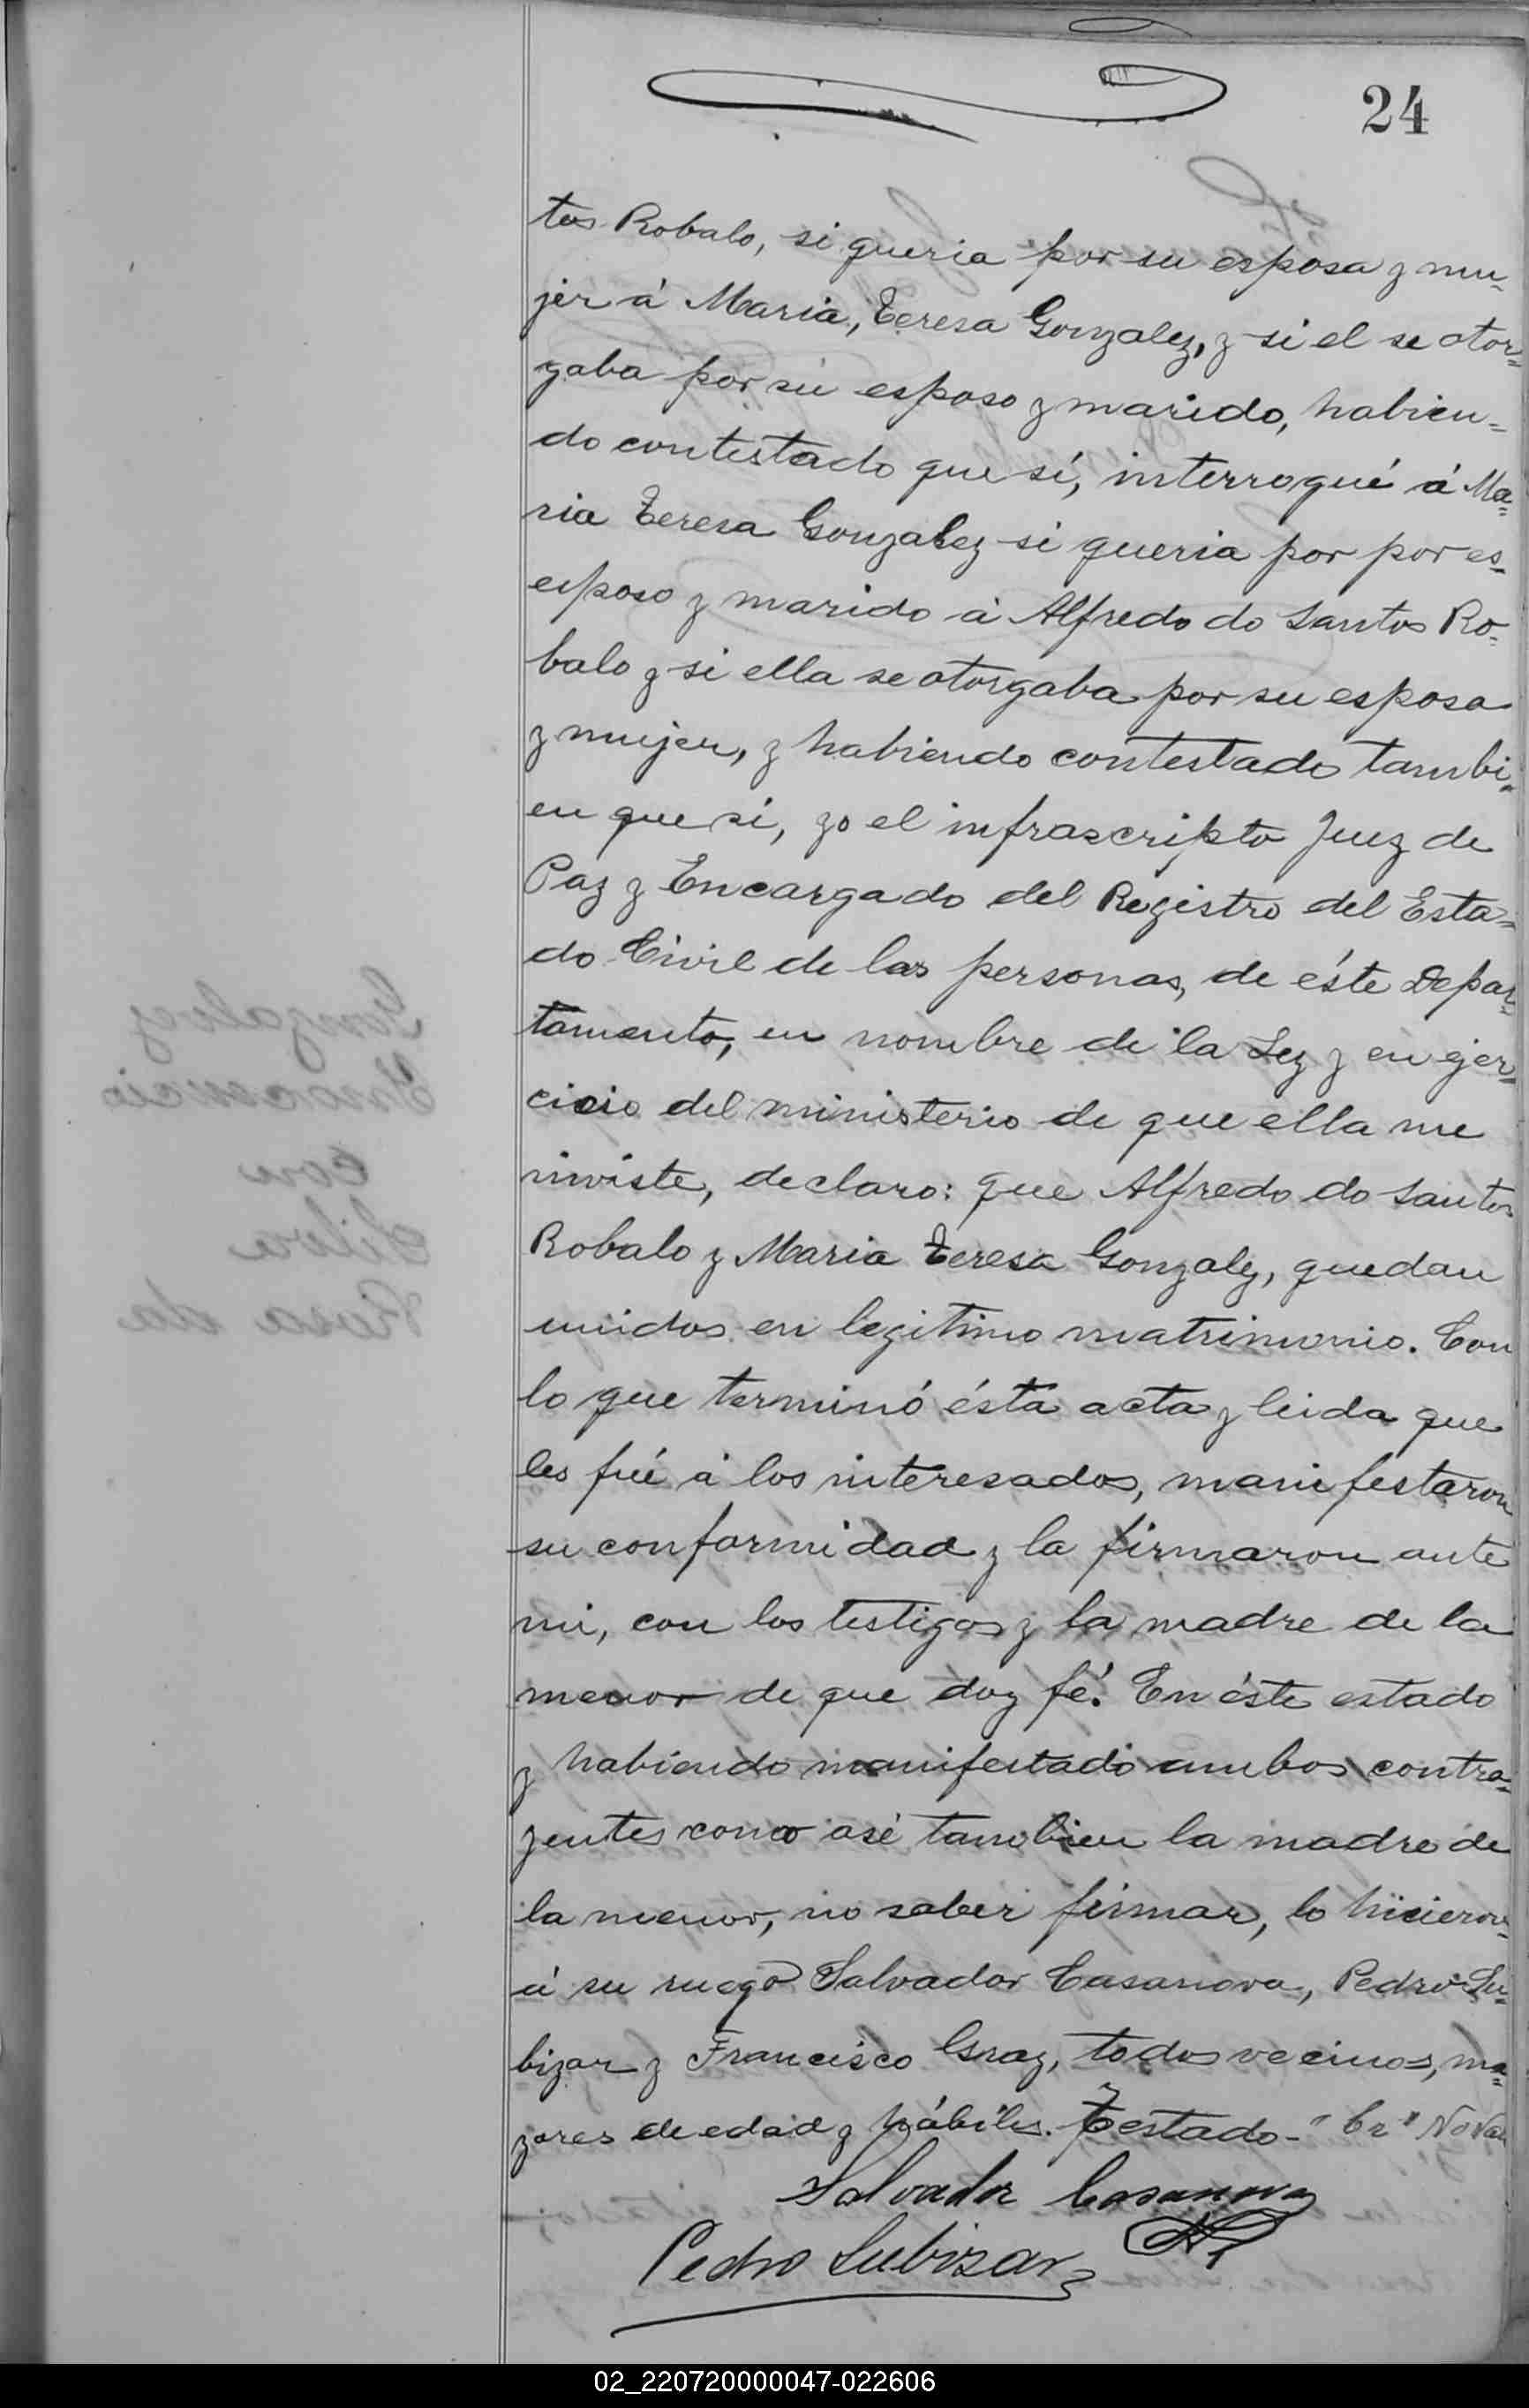 24
tos Robalo, si queria por su esposa y mu-
jer á Maria, Teresa Gonzalez, y si el se otor=
gaba por su esposo y marido, habien=
do contestado que sí, interrogué á Ma=
ria Teresa Gonzalez si queria por por es=
esposo y marido á Alfredo do Santos Ro=
balo y si ella se otorgaba por su esposa
y mujer, y habiendo contestado tambi=
en que sí, yo el infrascripto Juez de
Paz y Encargado del Registro del Esta=
do Civil de las personas, de éste Depar=
tamento, en nombre de la Ley y en ejer=
cicio del ministerio de que ella me
inviste, declaro: que Alfredo do Santos
Robalo y Maria Teresa Gonzalez, quedan
unidos en legitimo matrimonio. Con
lo que terminó ésta acta y leida que
les fué á los interesados, manifestaron
su conformidad y la firmaron ante
mi, con los testigos y la madre de la
menor de que doy fé. En éste estado
y habiendo manifestado ambos contra=
yentes como asé tambien la madre de
la menor, no saber firmar, lo hicieron
á su ruego Salvador Casanova, Pedro Lu=
bizar y Francisco Gray, todos vecinos, ma=
yores de edad y hábiles. Testado - "Cr" No Vale
Salvador Casanova
Pedro Lubizar
Gonzalez
Inocencio
con
Silva
Rosa da
02_220720000047-022606